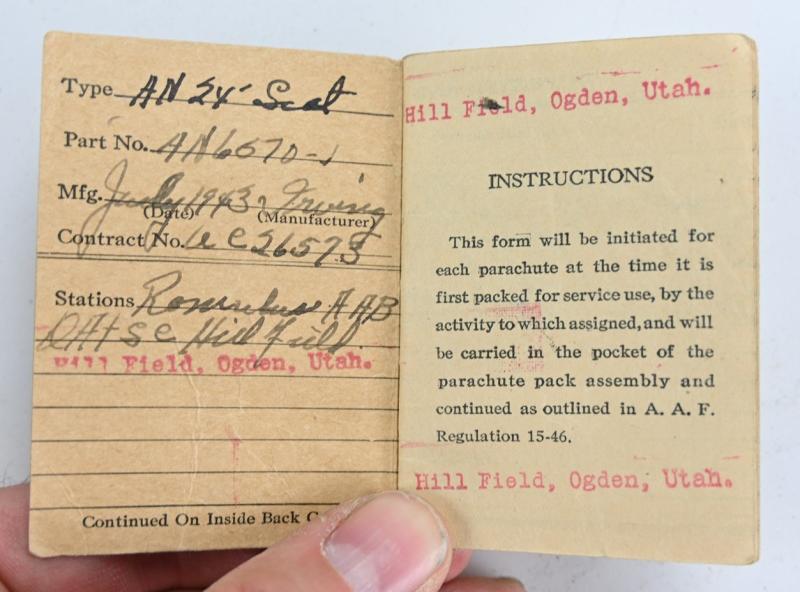 Type AN 24' Seat
Part No. AN6570-1
Mfg. July 1943 Irving
(Date) (Manufacturer)
Contract No. ac 26573
Stations Romulus AAB
Hill Field
Hill Field, Ogden, Utah.
Continued On Inside Back
Hill Field, Ogden, Utah.
INSTRUCTIONS
This form will be initiated for
each parachute at the time it is
first packed for service use, by the
activity to which assigned, and will
be carried in the pocket of the
parachute pack assembly and
continued as outlined in A. A. F.
Regulation 15-46.
Hill Field, Ogden, Utah.